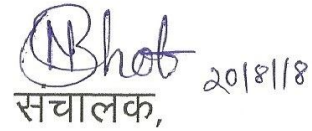 NBhob 20/8/18
सचालक,